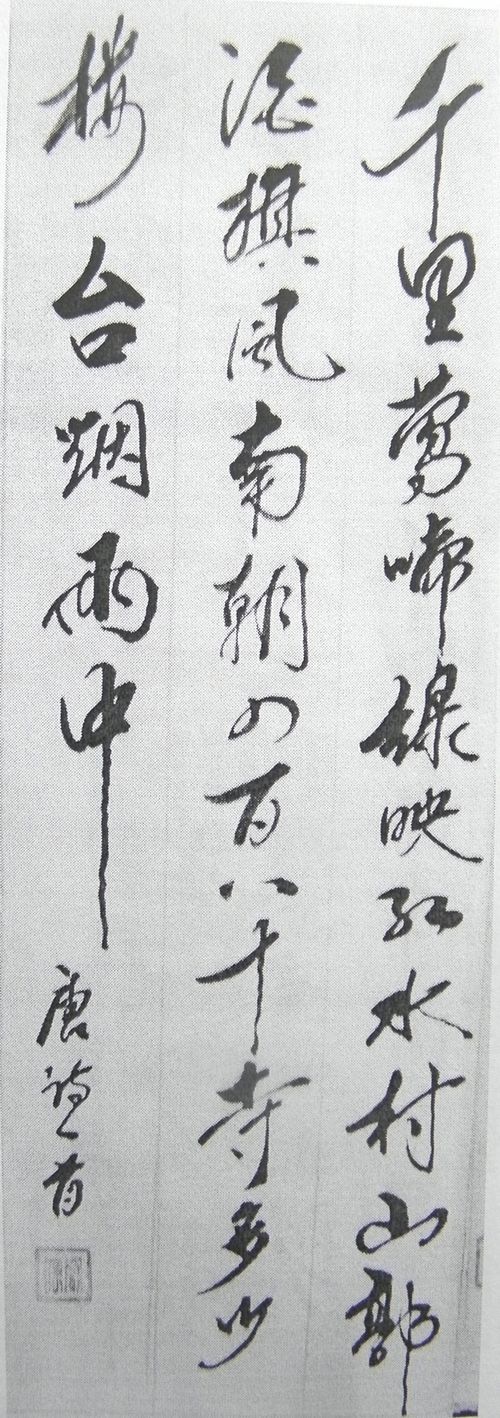 千里莺啼绿映红水村山郭
酒旗风南朝四百八十寺多少
楼台烟雨中
唐诗一首